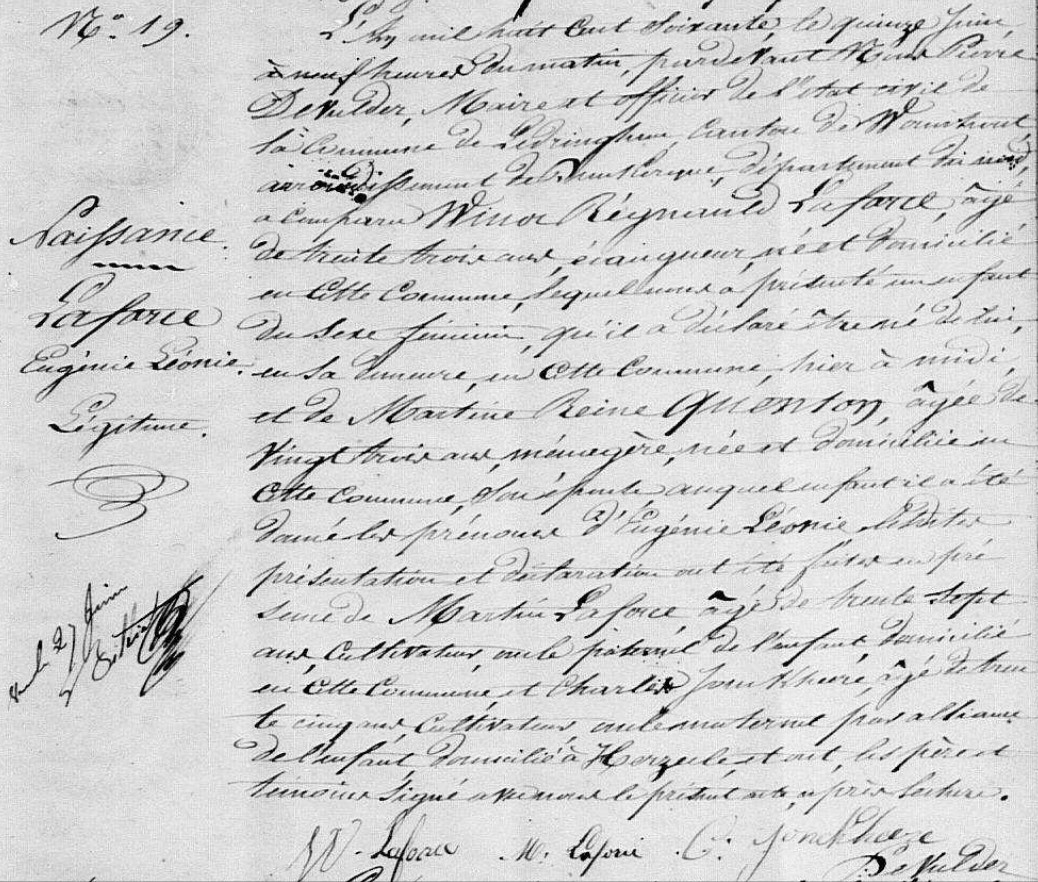 N.o 19.
Naissance.
Laforce
Eugénie Léonie.
Légitime.
27 Juin
L'An mil huit Cent Soixante, le quinze Juin,
à neuf heures du matin, pardevant Nous Pierre
DeVulder, Maire et officier de l'état civil de
la Commune de Ledringhem, Canton de Wormhout
arrondissement de Dunkerque, département du nord,
a comparu Winoc Régnauld Laforce, âgé
de trente trois ans, né et domicilié
en Cette Commune, lequel nous a présenté un enfant
du Sexe féminin, qu'il a déclaré être né de lui,
en Sa demeure, en Cette Commune, hier à midi,
et de Martine Reine Quenton, âgée de
vingt trois ans, ménagère, née et domiciliée en
Cette Commune, Son épouse auquel enfant il a été
donné les prénoms d'Eugénie Léonie lesdites
présentation et déclaration ont été faites en pré
sence de Martin Laforce âgé de trente sept
ans, Cultivateur, oncle paternel de l'enfant, domicilié
en Cette Commune, et Charles Jonckheere, âgé de tren
te cinq ans, Cultivateur, oncle maternel par alliance
de l'enfant domicilié à Herzeele, et ont, les père et
témoins Signé avec nous le présent acte, après lecture.
W. Laforce M. Laforce C. Jonckheere
DeVulder